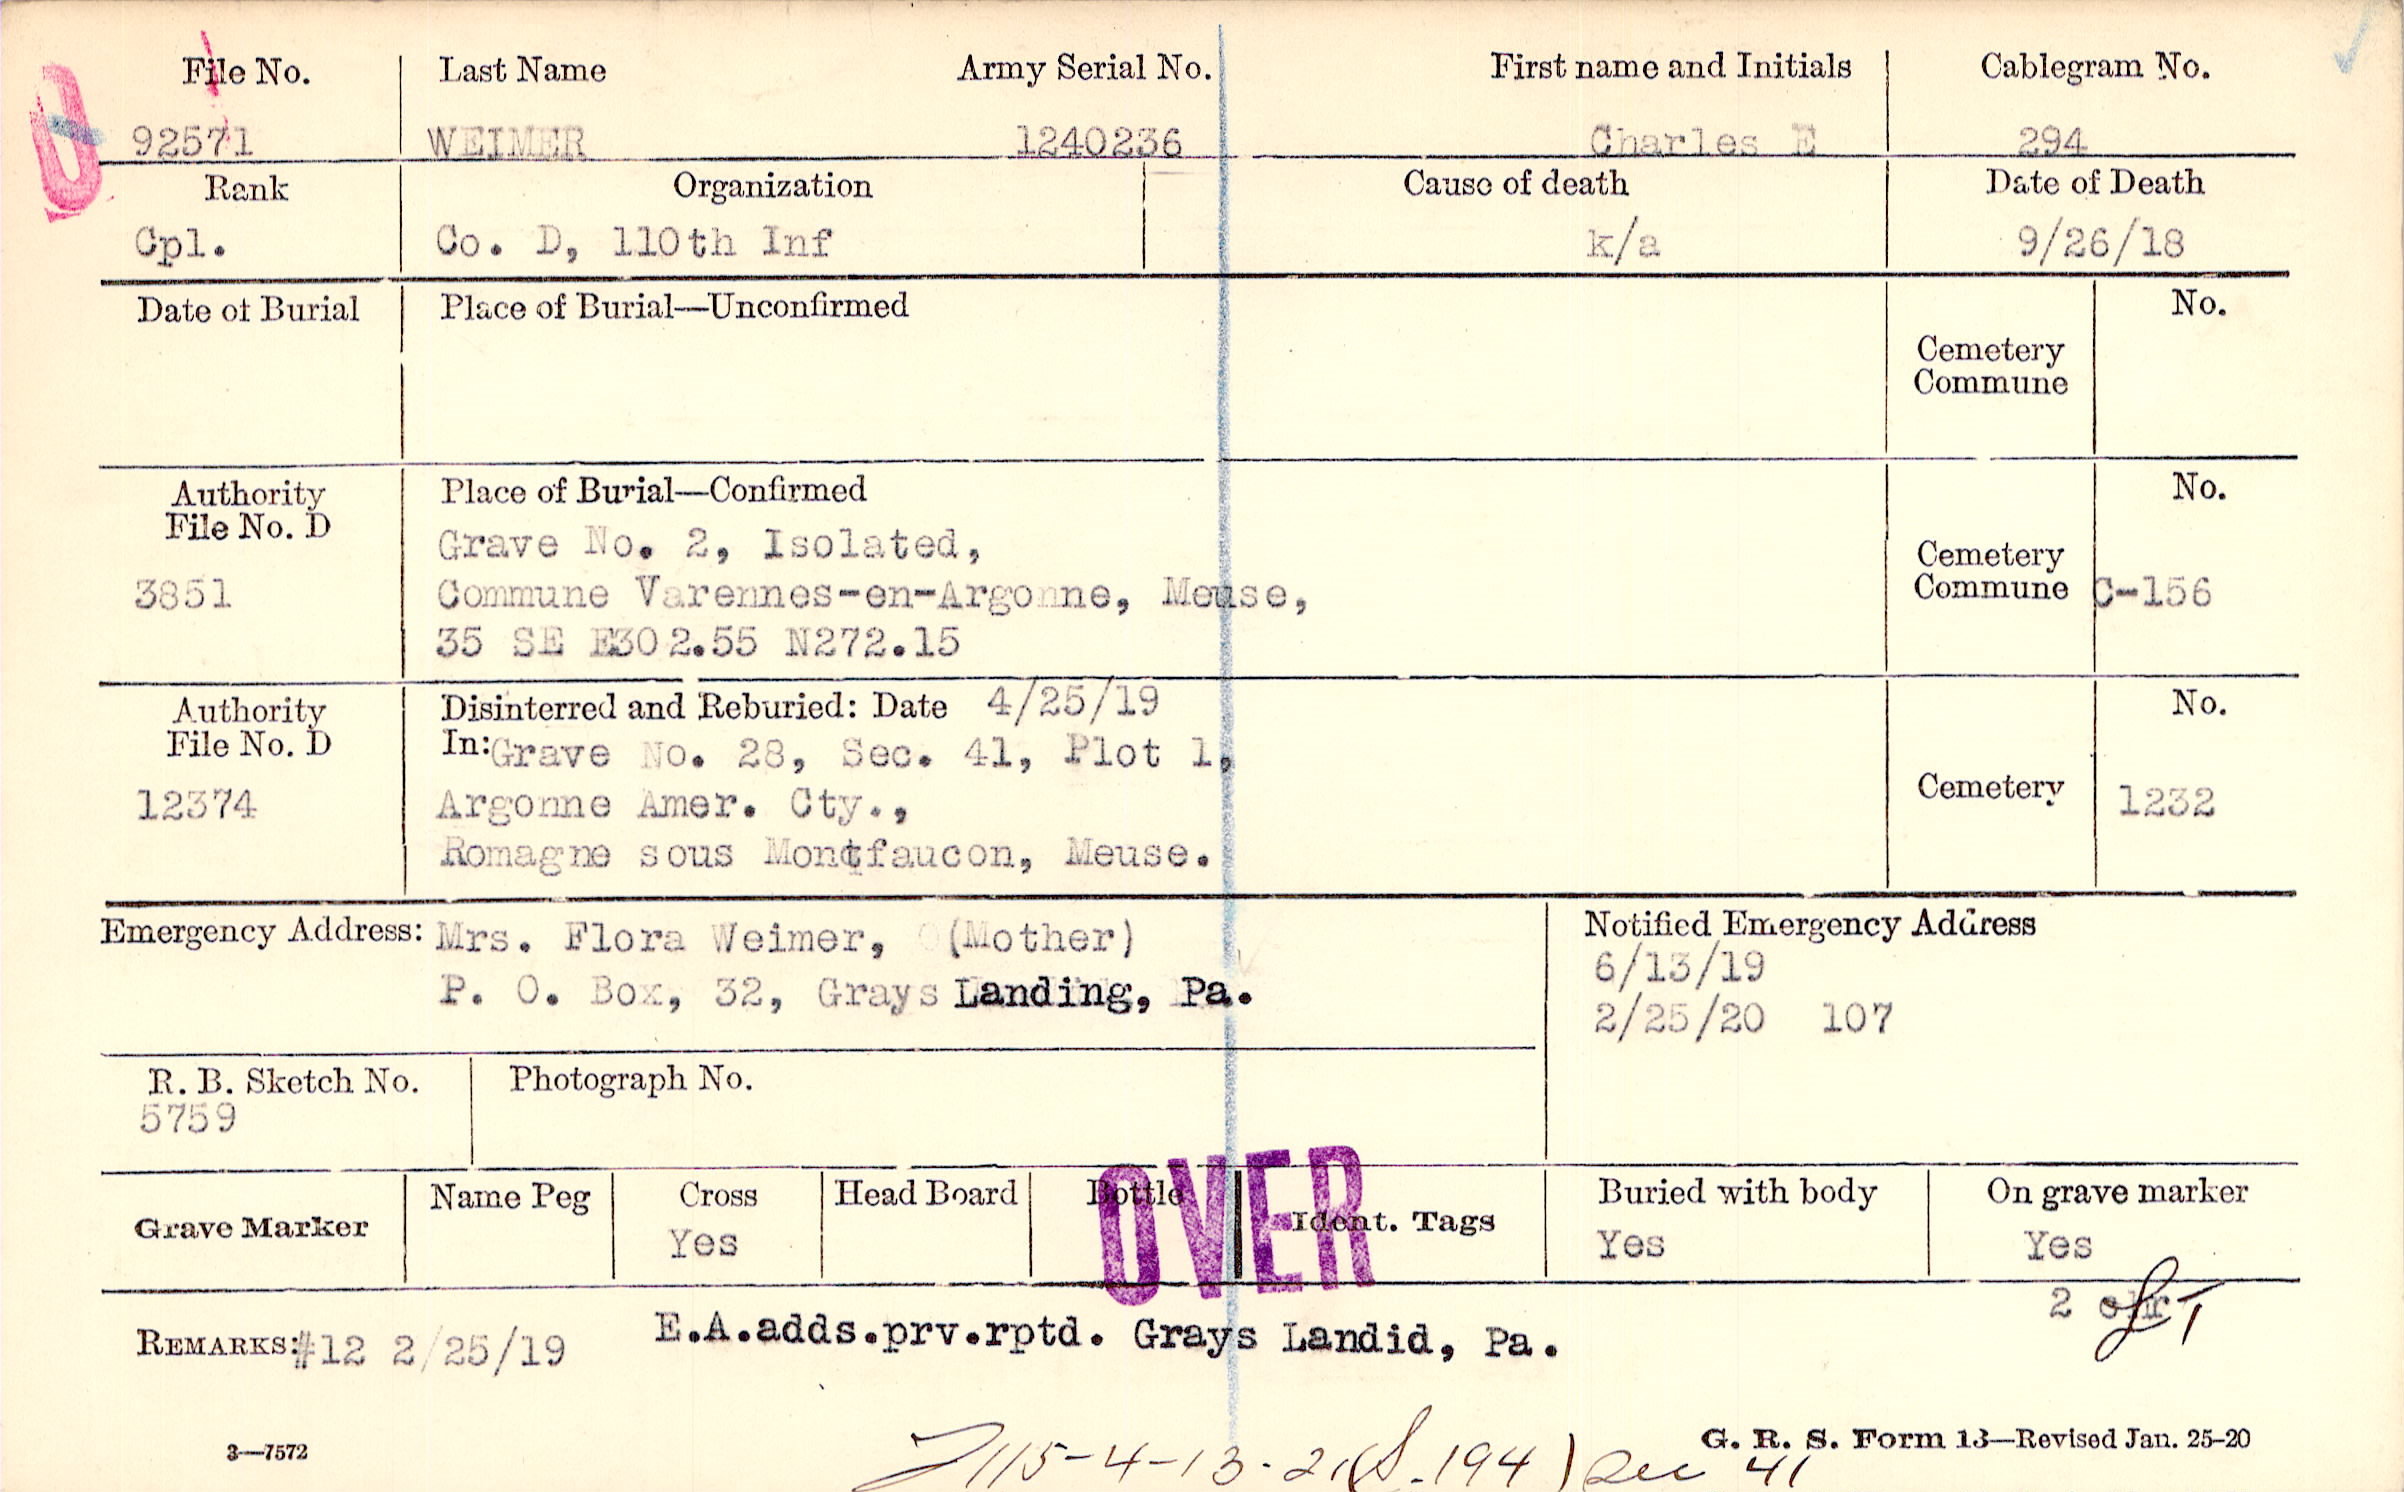 File No. Last Name Army Serial No. First name and Initials Cablegram No.
92571 WEIMER 1240236 Charles E 294
Rank Organization Cause of death Date of Death
Cpl. Co. D, 110th Inf k/a 9/26/18
Date of Burial Place of Burial—Unconfirmed No.
Cemetery
Commune
Authority Place of Burial—Confirmed No.
File No. D
Grave No. 2, Isolated,
Cemetery
3851 Commune Varennes-en-Argonne, Meuse, Commune C-156
35 SE E302.55 N272.15
Authority Disinterred and Reburied: Date 4/25/19 No.
File No. D In: Grave No. 28, Sec. 41, Plot 1,
12374 Argonne Amer. Cty., Cemetery 1232
Romagne sous Montfaucon, Meuse.
Emergency Address: Mrs. Flora Weimer, (Mother) Notified Emergency Address
6/13/19
P. O. Box, 32, Grays Landing, Pa.
2/25/20 107
R. B. Sketch No. Photograph No.
5759
OVER
Grave Marker Name Peg Cross Head Board Bottle Ident. Tags Buried with body On grave marker
Yes Yes Yes
2
REMARKS: #12 2/25/19 E.A.adds.prv.rptd. Grays Landid, Pa.
3—7572 G. R. S. Form 13—Revised Jan. 25-20
115-4-13-21 (S.194) Sec 41